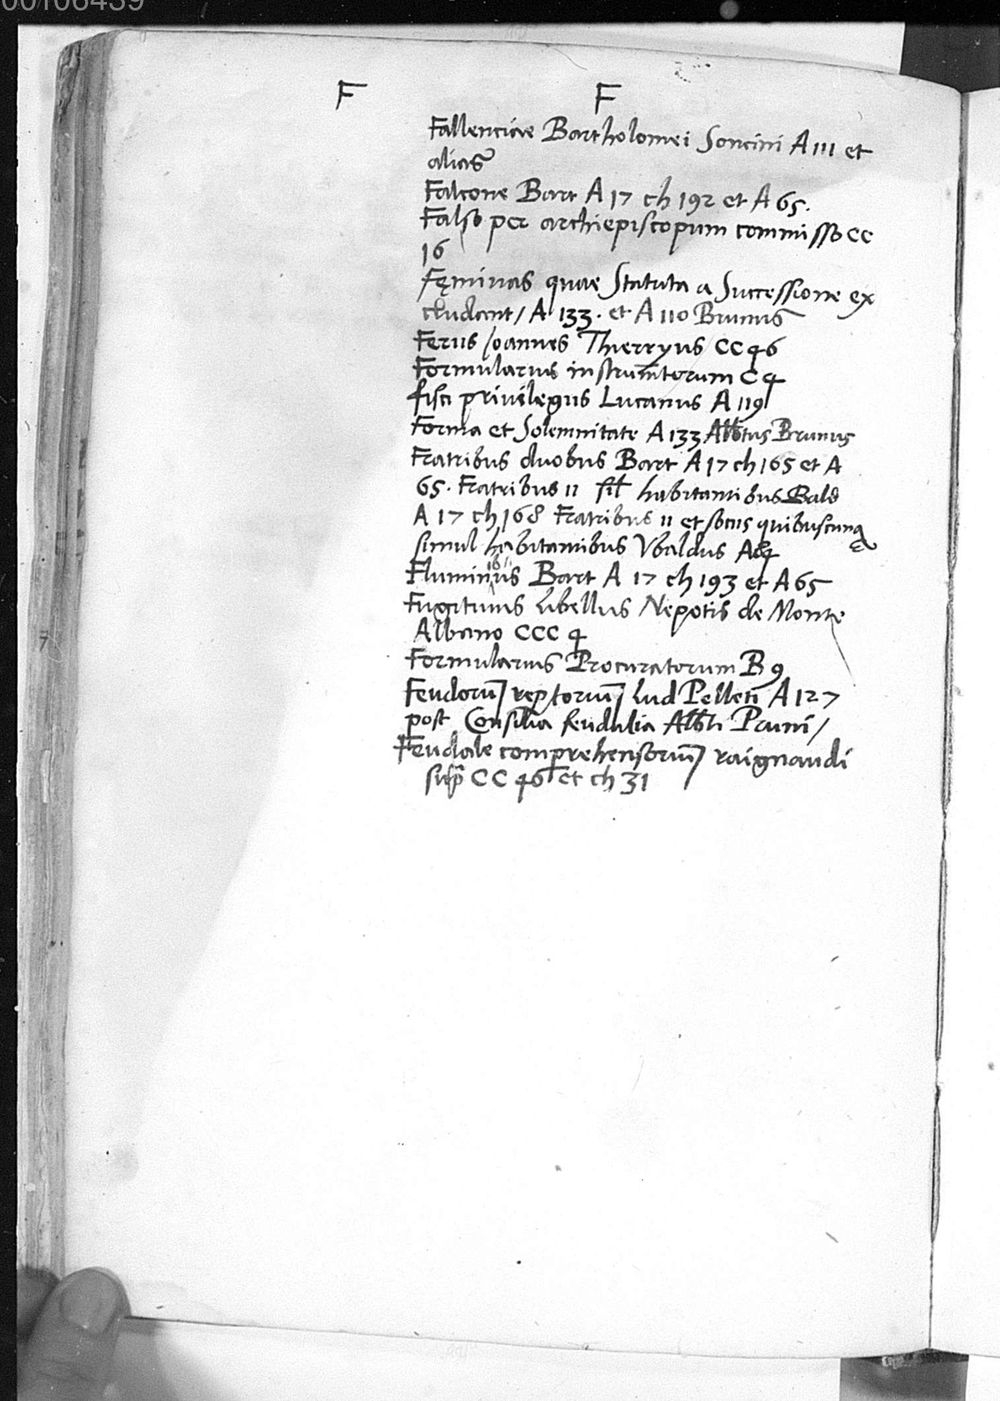 00106439
F F
Fallenciae Bartholomei Soncini A 111 et
alias
Falcone Bart A 17 ch 192 et A 65.
Falso per archiepiscopum commisso CC
16
fęminas quae Statuta a Successione ex
cludant / A 133. et A 110 Brunus
Ferus Joannes Thierryus CC 46
Formularius instrum̄torum C 4
fisci privilegiis Lucanus A 119
Forma et Solemnitate A 133 Albtus Brunus
Fratribus duobus Bart A 17 ch 165 et A
65. Fratribus 11 sil habitantibus Bald
A 17 ch 168 Fratribus 11 et socus quibuscunq
simul habitantibus Vbaldus A 84
Fluminius Bart A 17 ch 193 et A 65
Fugitivus libellus Nepotis de Monte
Albano CCC 4
Formularius Procuratorum B 9
Feudorū reptoriū Lud Pelleti A 127
post Consilia feudalia Albti Bruni /
Feudale comprehensoriū raignaudi
sup̄ CC 46 et ch 31